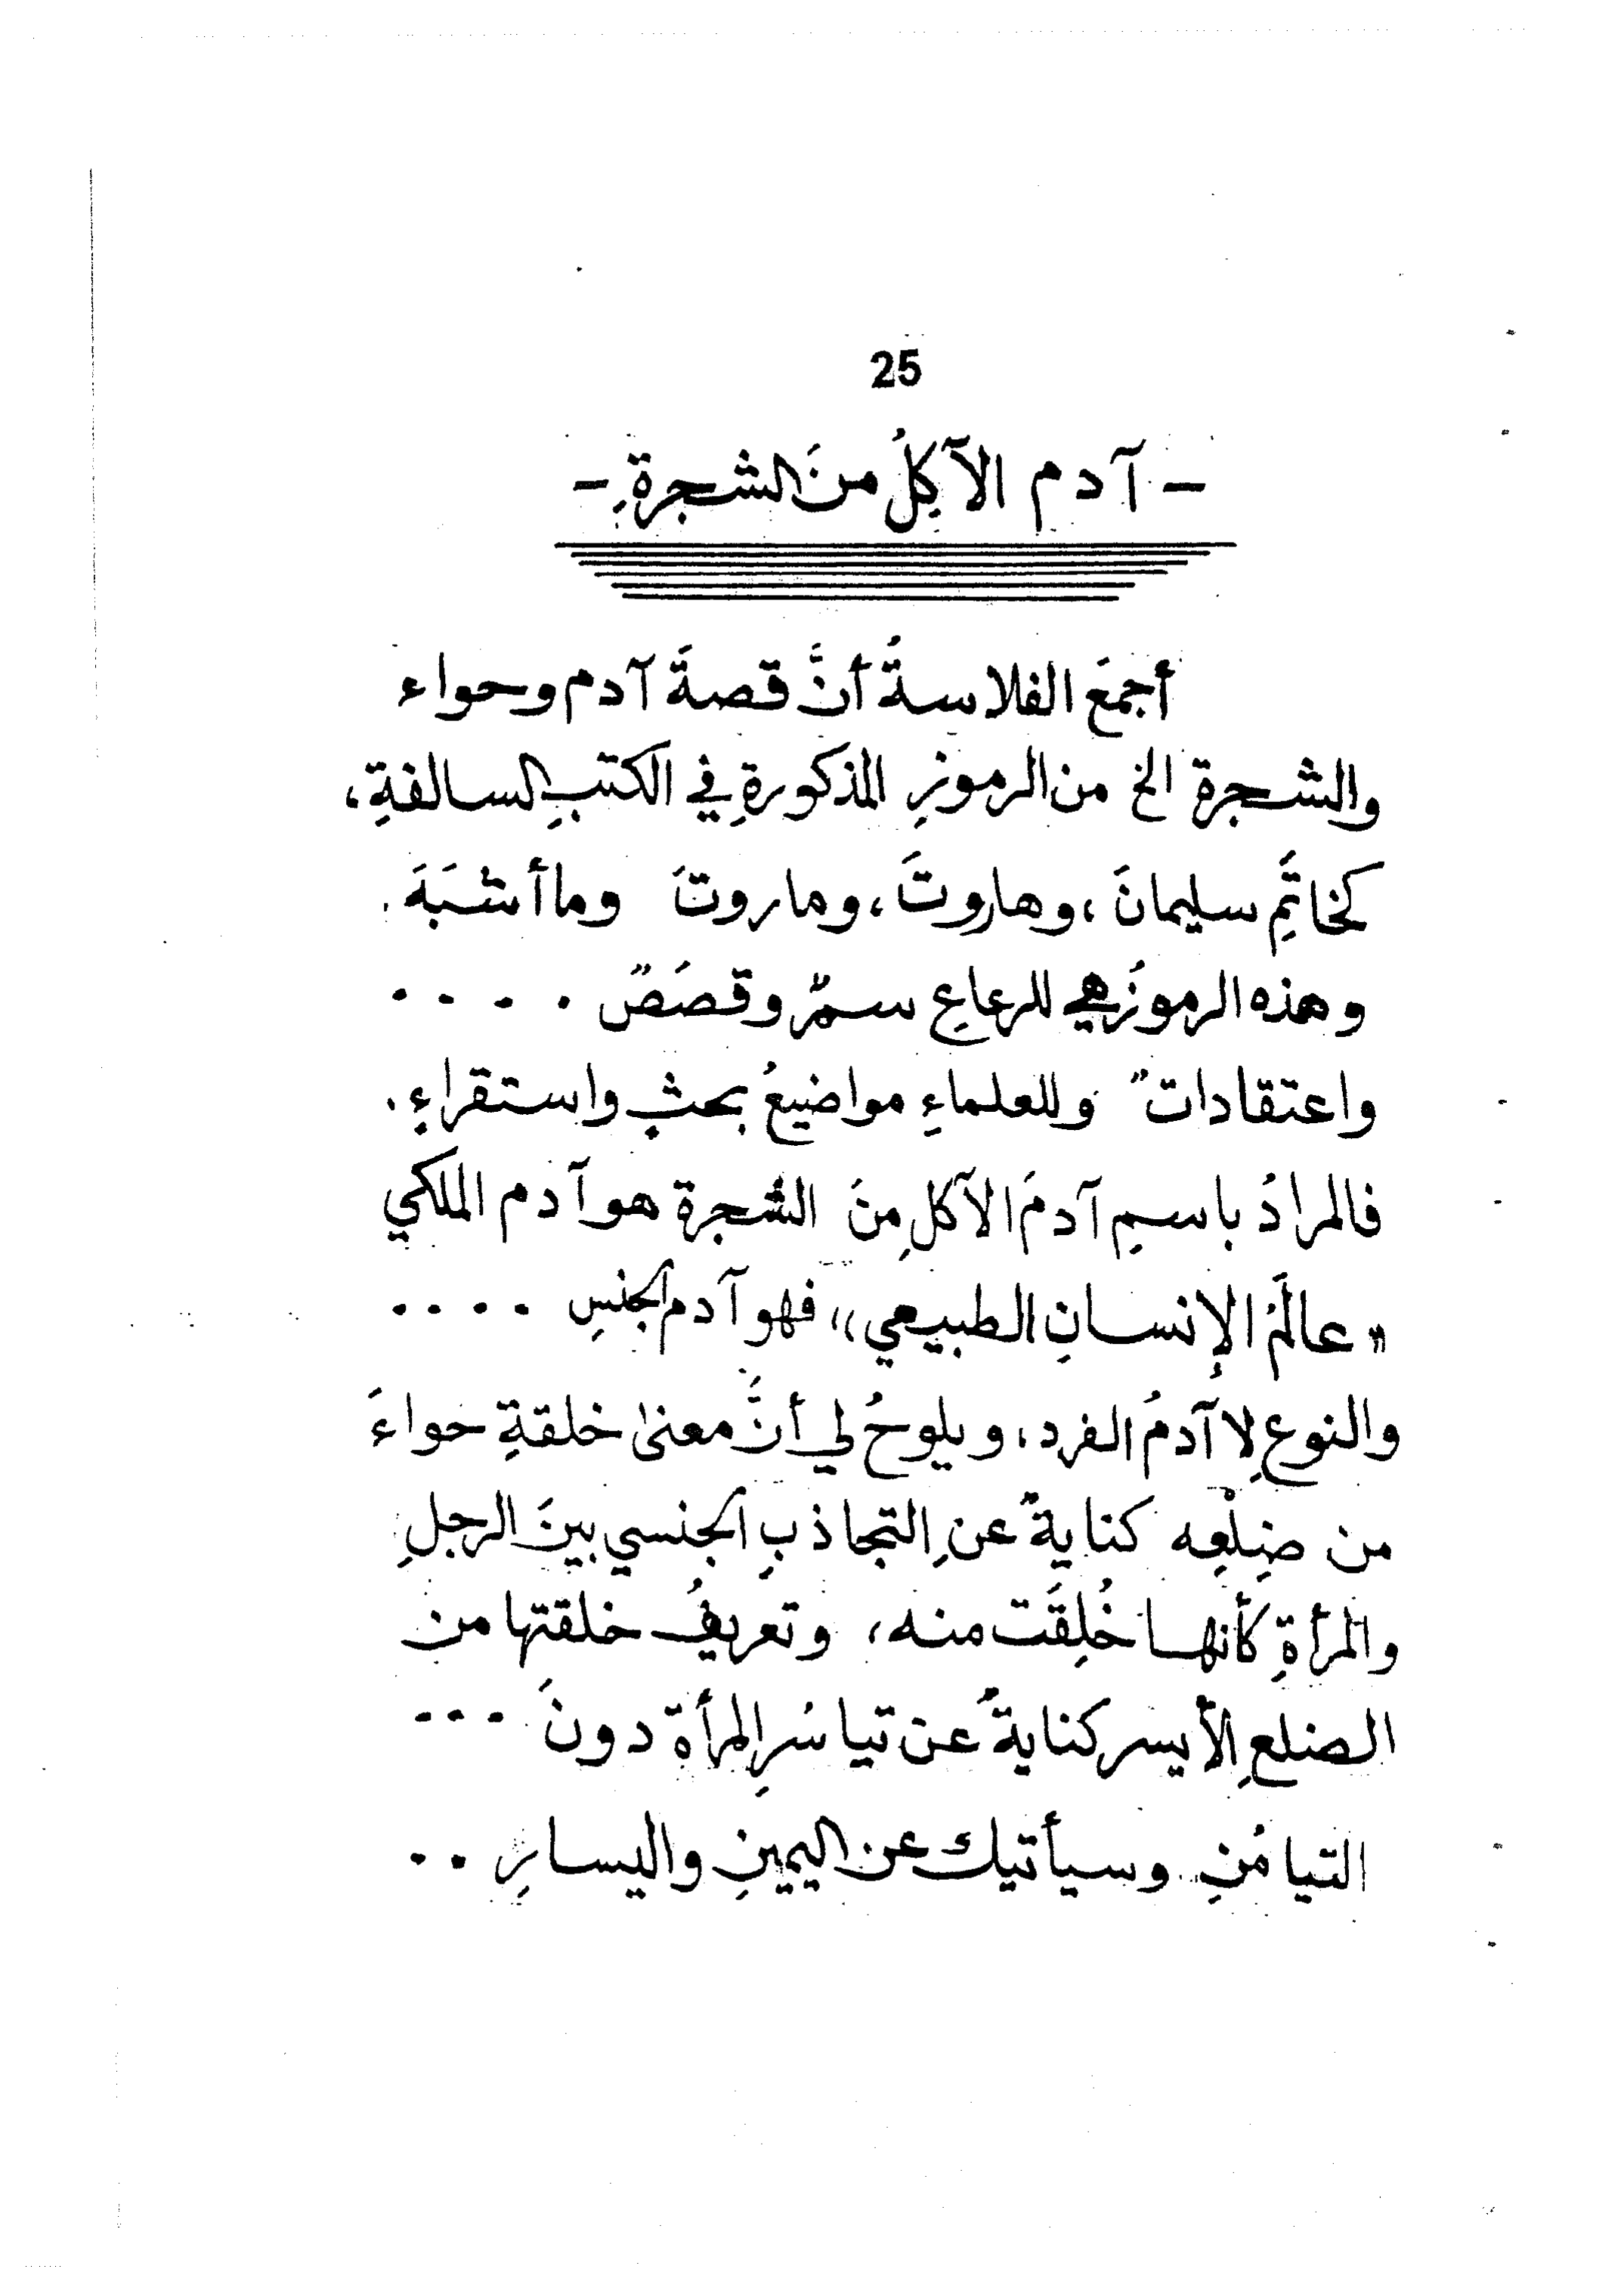 25
- آدم الآكِلُ منَ الشجرةِ -
أجمعَ الفلاسفةُ أنَّ قصةَ آدم وحواء
والشجرة الخ من الرموزِ المذكورةِ في الكتبِ السالفةِ،
كخاتَمِ سليمانَ، وهاروتَ، وماروتَ وما أشبَهَ.
وهذه الرموزُ هي للرعاعِ سمرٌ وقصَصٌ . . . .
واعتقاداتٌ وللعلماءِ مواضيعُ بحثٍ واستقراءٍ.
فالمرادُ باسمِ آدمَ الآكلِ مِنَ الشجرة هو آدم الملكي
«عالَمُ الإنسانِ الطبيعي» فهو آدم الجنسِ . . . .
والنوعِ لا آدمُ الفرد، ويلوحُ لي أنَّ معنى خلقةِ حواءَ
من ضِلْعِه كنايةٌ عنِ التجاذبِ الجنسي بينَ الرجلِ
والمرأةِ كأنها خُلِقَت منه، وتعريفُ خلقتها من
الضلعِ الأيسر كنايةٌ عن تياسُرِ المرأة دونَ . . .
التيامُنِ وسيأتيك عن اليمينِ واليسارِ . .